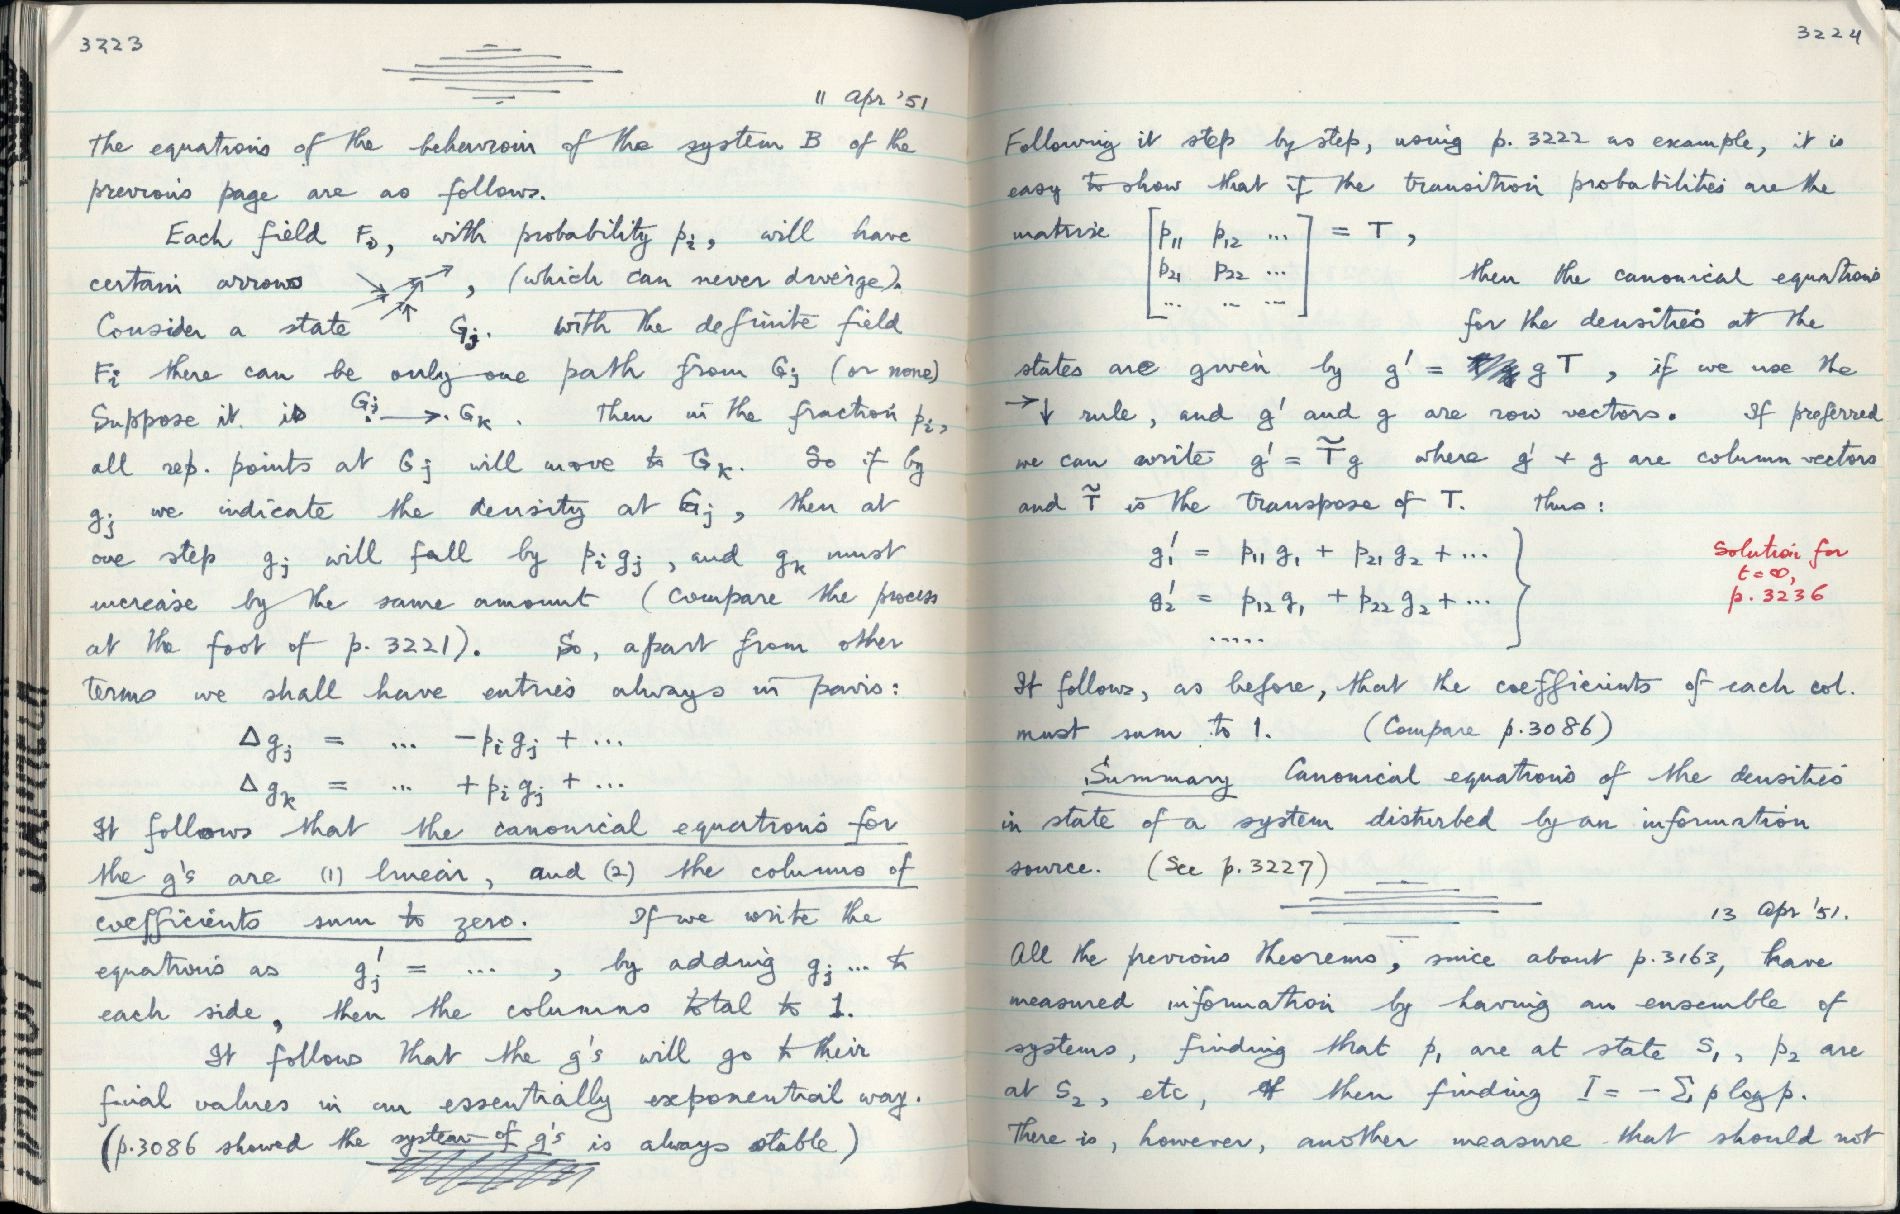 3223
11 Apr '51
The equations of the behaviour of the system B of the
previous page are as follows.
Each field Fi, with probability pi, will have
certain arrows , (which can never diverge).
Consider a state Gj. With the definite field
Fi there can be only one path from Gj (or none)
Suppose it is Gj → Gk. Then in the fraction pi,
all rep. points at Gj will move to Gk. So if by
gj we indicate the density at Gj, then at
one step gj will fall by pi gj, and gk must
increase by the same amount (Compare the process
at the foot of p. 3221). So, apart from other
terms we shall have entries always in pairs:
Δgj = ... -pi gj + ...
Δgk = ... +pi gj + ...
It follows that the canonical equations for
the g's are (1) linear, and (2) the columns of
coefficients sum to zero. If we write the
equations as gj' = ... , by adding gj ... to
each side, then the columns total to 1.
It follows that the g's will go to their
final values in an essentially exponential way.
(p.3086 showed the system of g's is always stable)
3224
Following it step by step, using p. 3222 as example, it is
easy to show that if the transition probabilities are the
matrix [p11 p12 ...] = T,
[p21 p22 ...] then the canonical equations
[... ... ...] for the densities at the
states are given by g' = g T, if we use the
→↓ rule, and g' and g are row vectors. If preferred
we can write g' = T̃g where g' + g are column vectors
and T̃ is the transpose of T. Thus:
g1' = p11 g1 + p21 g2 + ...
g2' = p12 g1 + p22 g2 + ...
.....
Solution for
t=∞,
p. 3236
It follows, as before, that the coefficients of each col.
must sum to 1. (Compare p.3086)
Summary Canonical equations of the densities
in state of a system disturbed by an information
source. (See p.3227)
13 Apr '51.
All the previous theorems, since about p.3163, have
measured information by having an ensemble of
systems, finding that p1 are at state S1, p2 are
at S2, etc, then finding I = - Σ p log p.
There is, however, another measure that should not